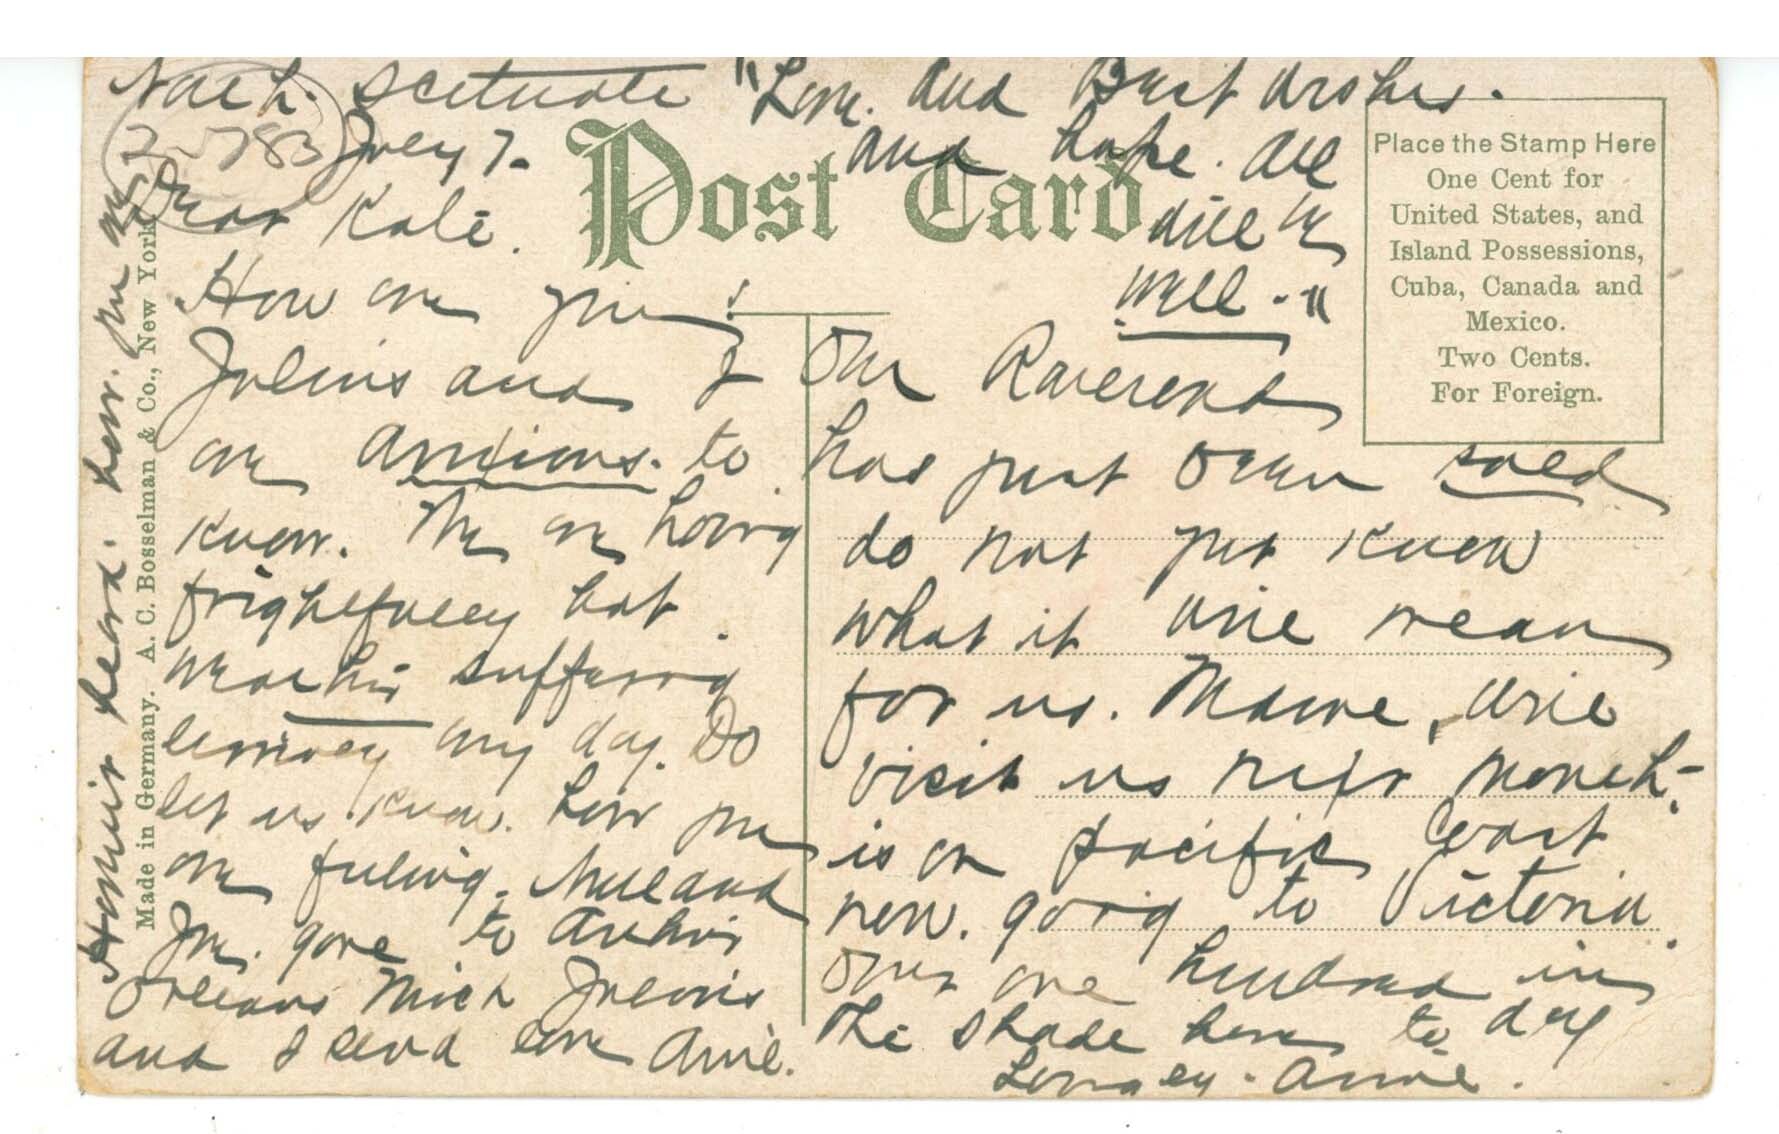 North Scituate
2-783
July 7-
Dear Kate.
How are you?
Julius and I
are anxious to
know. We are having
frightfully hot
weather suffering
every day. Do
let us know how you
are feeling.
gone to
Orleans Mich Julius
and I send love Annie.
Have not heard how you are
"Love and Best wishes.
and hope all
will be
well."
Post Card
Our Reverend
has just been
do not yet know
what it will mean
for us. Mame will
visit us next month-
is on Pacific Coast
now. going to Victoria.
Over one hundred in
the shade here to day
Lovingly. Annie.
Place the Stamp Here
One Cent for
United States, and
Island Possessions,
Cuba, Canada and
Mexico.
Two Cents.
For Foreign.
Made in Germany. A. C. Bosselman & Co., New York